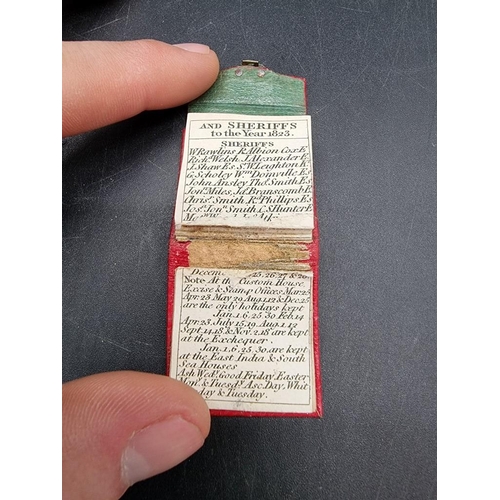 AND SHERIFFS
to the Year 1823.
SHERIFFS
W Rawlins R Albion Cox E
Rich. Welsh J. Alexander E
J. Shaw Es Sr. W Leighton E
G Scholey Wm Domville Es
John Ansley Tho. Smith Es
Jon. Miles, Js. Branscomb E
Chris. Smith R. Phillips Es
Jos. Jon. Smith C S Hunter E
Decem. 25. 26. 27 & 28
Note At th Custom House
Excise & Stamp Offices Mar. 25
Apr. 23 May 29 Aug. 12 & Dec 25
are the only holidays kept
Jan. 1. 6. 25 30 Feb. 14
Apr. 23. July 15. 19. Aug. 1. 12
Sept. 14. 18 & Nov. 2. 18 are kept
at the Exchequer.
Jan. 1. 6. 25. 30. are kept
at the East India & South
Sea Houses
Ash Wed. Good Friday Easter
Mon. & Tuesd. Asc. Day, Whit
day & Tuesday.